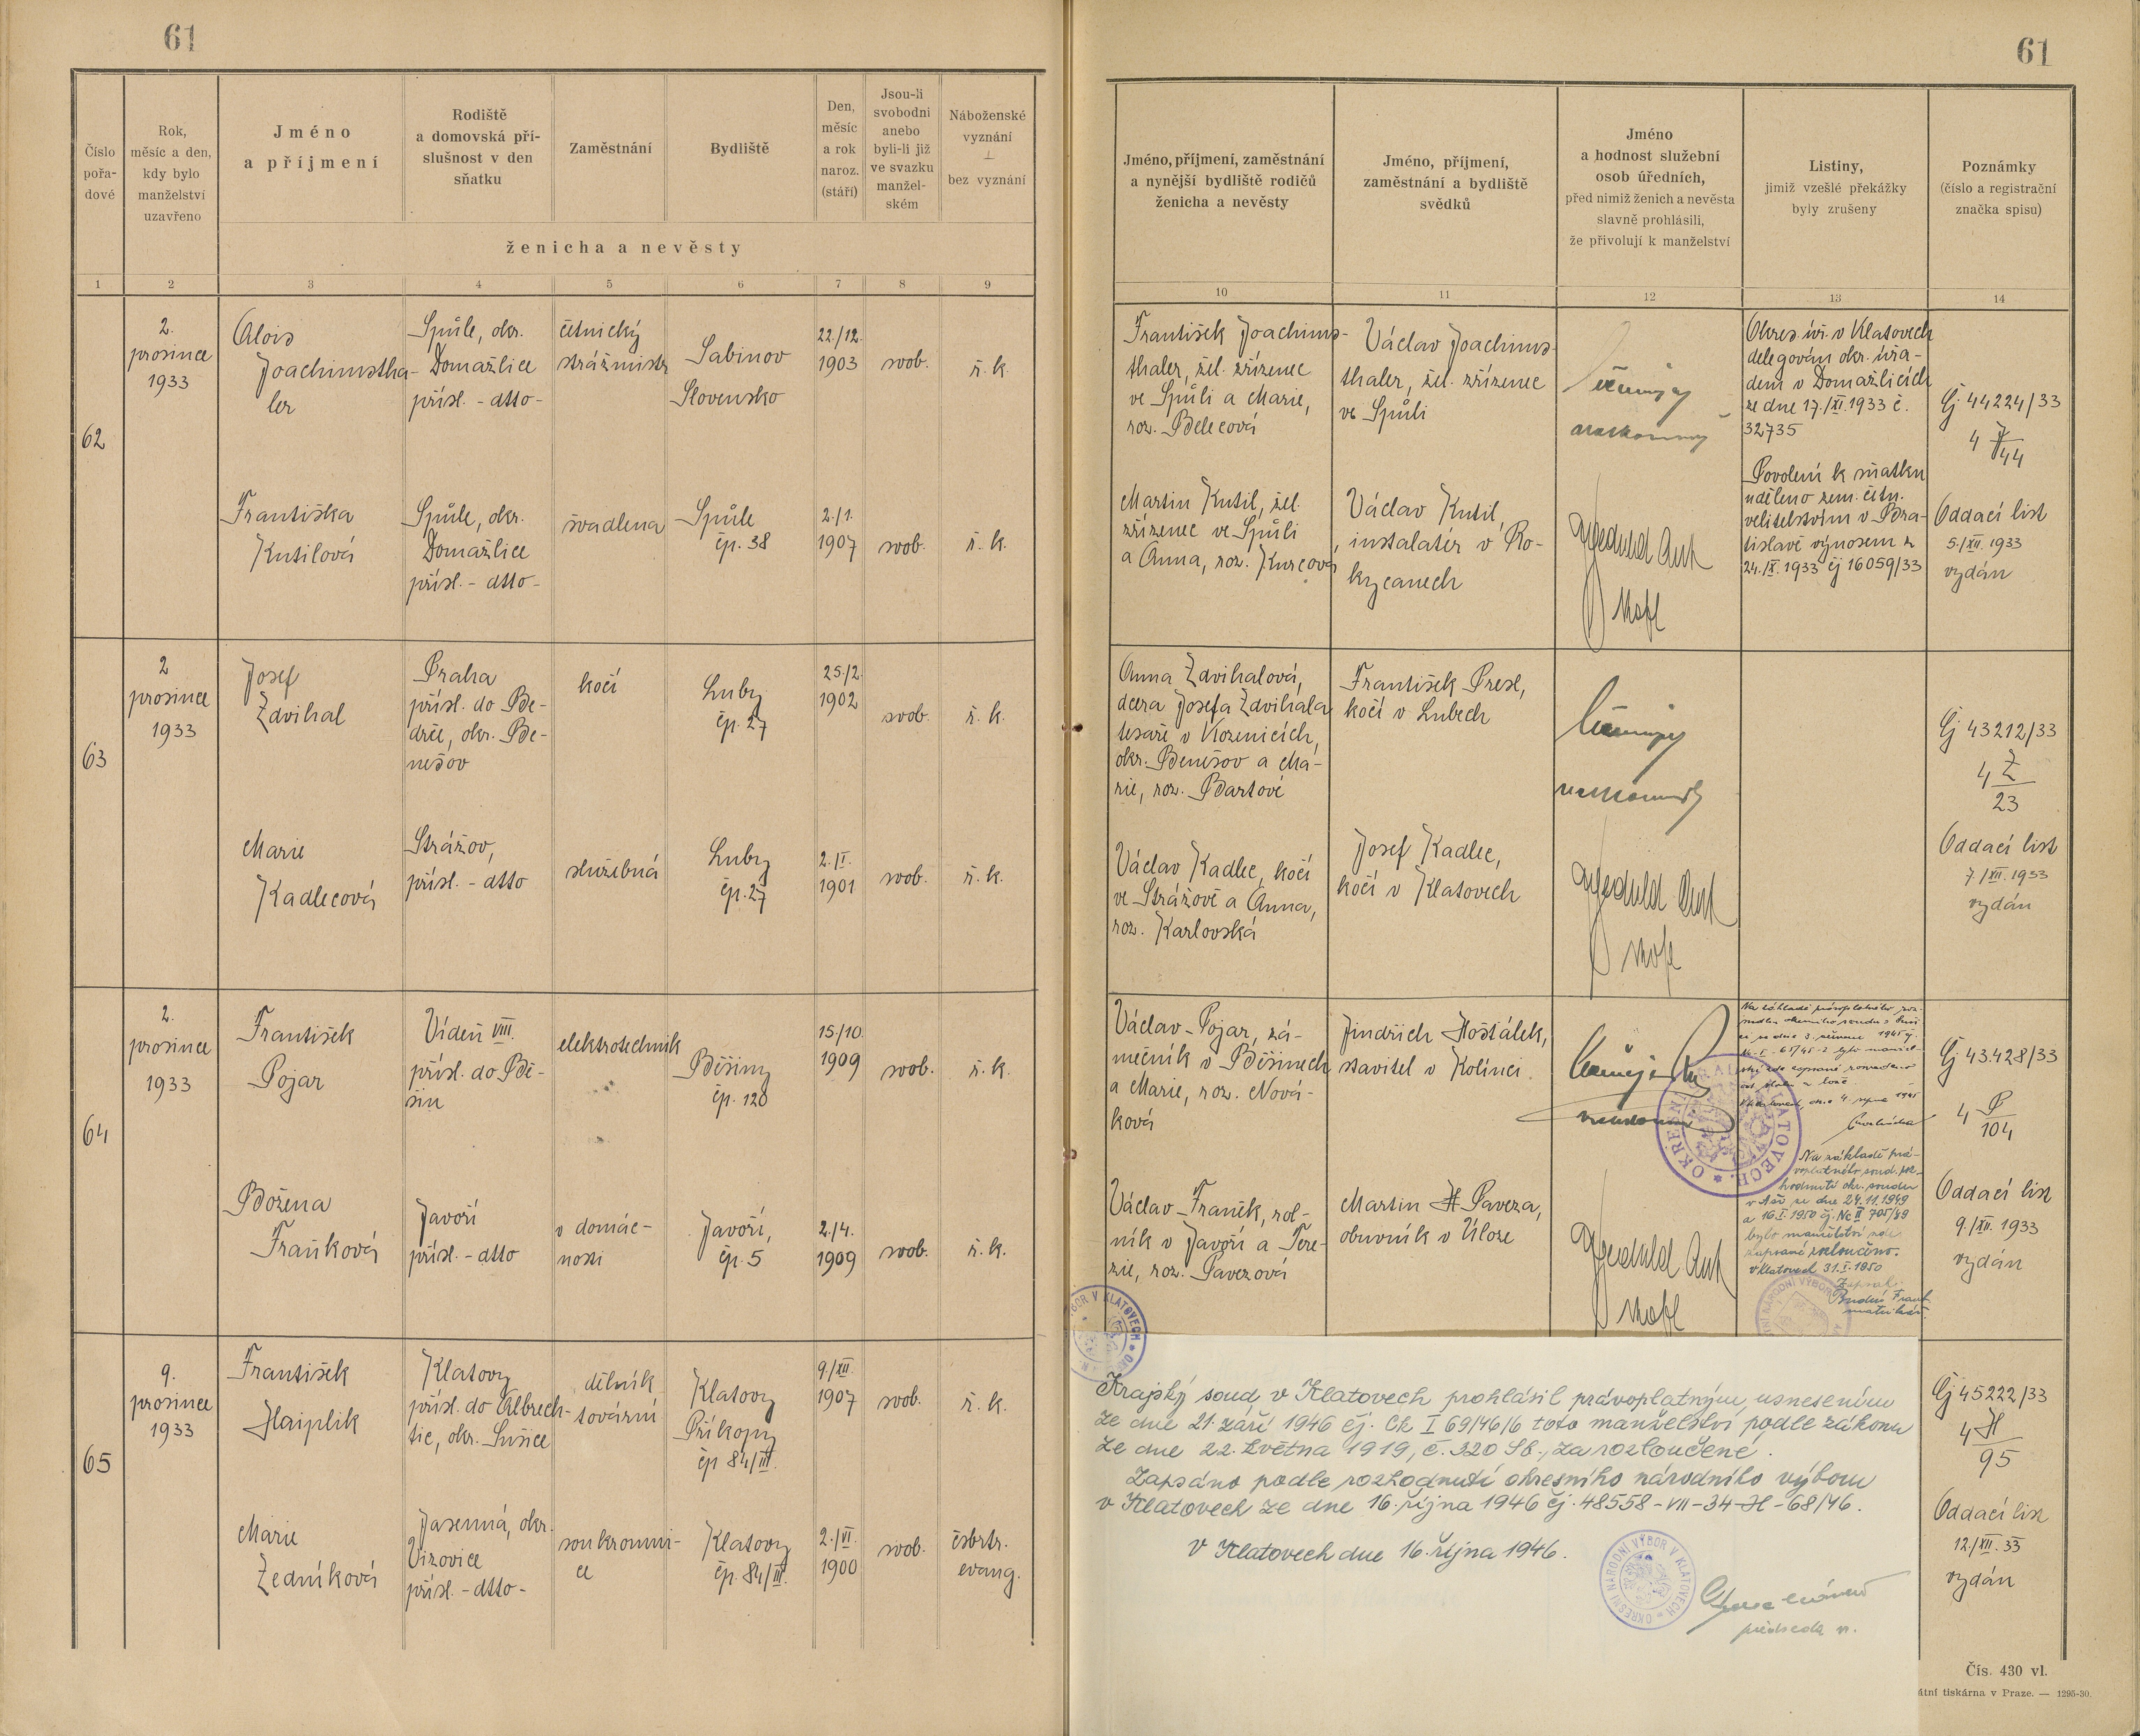 61
Číslo
pořa-
dové
Rok,
měsíc a den,
kdy bylo
manželství
uzavřeno
Jméno
a příjmení
Rodiště
a domovská pří-
slušnost v den
sňatku
Zaměstnání
Bydliště
Den,
měsíc
a rok
naroz.
(stáří)
Jsou-li
svobodni
anebo
byli-li již
ve svazku
manžel-
ském
Náboženské
vyznání
bez vyznání
ženicha a nevěsty
1 2 3 4 5 6 7 8 9
62
2.
prosince
1933
Alois
Joachimstha-
ler
Spůle, okr.
Domažlice
přísl. - dtto-
četnický
strážmistr
Sabinov
Slovensko
22./12.
1903
svob.
ř. k.
Františka
Kutilová
Spůle, okr.
Domažlice
přísl. - dtto-
švadlena
Spůle
čp. 38
2./1.
1907
svob.
ř. k.
63
2
prosince
1933
Josef
Zdvihal
Praha
přísl. do Be-
drče, okr. Be-
nešov
kočí
Luby
čp. 27
25./2.
1902
svob.
ř. k.
Marie
Kadlecová
Strážov,
přísl. - dtto
služebná
Luby
čp. 27
2./I.
1901
svob.
ř. k.
64
2.
prosince
1933
František
Pojar
Vídeň VIII.
přísl. do Bě-
šin
elektrotechnik
Běšiny
čp. 120
15/10.
1909
svob.
ř. k.
Božena
Fraňková
Javoří
přísl. - dtto
v domác-
nosti
Javoří,
čp. 5
2./4.
1909
svob.
ř. k.
65
9.
prosince
1933
František
Hajplik
Klatovy
přísl. do Albrech-
tic, okr. Sušice
dělník
tovární
Klatovy
Příkopy
čp 84/III.
9./XII.
1907
svob.
ř. k.
Marie
Zedníková
Jasenná, okr.
Vizovice
přísl. - dtto -
soukromni-
ce
Klatovy
čp. 84/III.
2./VI.
1900
svob.
čsbrtr.
evang.
61
Jméno, příjmení, zaměstnání
a nynější bydliště rodičů
ženicha a nevěsty
Jméno, příjmení,
zaměstnání a bydliště
svědků
Jméno
a hodnost služební
osob úředních,
před nimiž ženich a nevěsta
slavně prohlásili,
že přivolují k manželství
Listiny,
jimiž vzešlé překážky
byly zrušeny
Poznámky
(číslo a registrační
značka spisu)
10 11 12 13 14
František Joachims-
thaler, žel. zřízenec
ve Spůli a Marie,
roz. Belecová
Václav Joachims-
thaler, žel. zřízenec
ve Spůli
Okres. úř. v Klatovech
delegován okr. úřa-
dem v Domažlicích
ze dne 17./XI.1933 č.
32735
Čj 44224/33
4 J/44
Martin Kutil, žel.
zřízenec ve Spůli
a Anna, roz. Kurcová
Václav Kutil,
instalatér v Ro-
kycanech
Povolení k sňatku
uděleno zem. četn.
velitelstvím v Bra-
tislavě výnosem z
24./X. 1933 čj 16059/33
Oddací list
5./XII. 1933
vydán
Anna Zdvihalová,
dcera Josefa Zdvihala
tesaře v Kozmicích,
okr. Benešov a Ma-
rie, roz. Bartové
František Presl,
kočí v Lubech
Čj 43212/33
4 Z
23
Václav Kadlec, kočí
ve Strážově a Anna,
roz. Karlovská
Josef Kadlec,
kočí v Klatovech
Oddací list
7./XII. 1933
vydán
Václav Pojar, zá-
mečník v Běšinech
a Marie, roz. Nová-
ková
Jindřich Hošťálek,
stavitel v Kolínci
OKRESNÍ ÚŘAD V KLATOVECH
Čj 43428/33
4 P
104
Václav Franěk, rol-
ník v Javoří a Tere-
zie, roz. Pavezová
Martin Paveza,
obuvník v Úloze
Na základě prá-
voplatného soud. roz-
hodnutí okr. soudu
v Aši ze dne 24.11.1949
a 16.I.1950 čj. Nc II 705/49
bylo manželství zde
zapsané rozloučeno.
V Klatovech 31.I.1950
Zapsal:
Oddací list
9./XII. 1933
vydán
Krajský soud v Klatovech prohlásil právoplatným usnesením
ze dne 21. září 1946 čj. Ck I 69/46/6 toto manželství podle zákona
ze dne 22. května 1919, č. 320 Sb., za rozloučené.
Zapsáno podle rozhodnutí okresního národního výboru
v Klatovech ze dne 16. října 1946 čj. 48558-VII-34-H-68/46.
V Klatovech dne 16. října 1946.
OKRESNÍ NÁRODNÍ VÝBOR V KLATOVECH
předseda
Čj 45222/33
4 H
95
Oddací list
12./XII. 33
vydán
Čís. 430 vl.
átní tiskárna v Praze. — 1295-30.